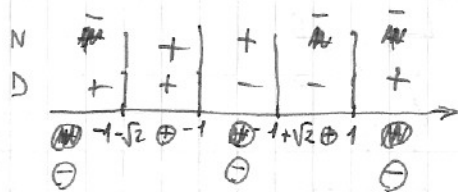 − − −
N | + | + | |
D + | + | − | − | +
-1-√2 ⊕ -1 ⊕ -1+√2 ⊕ 1
⊖ ⊖ ⊖